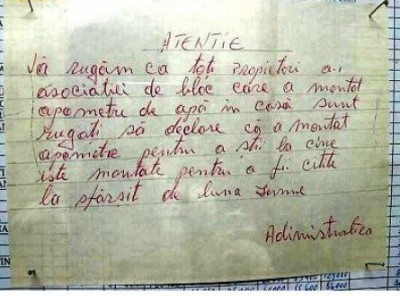 ATENTIE
Vă rugăm ca toți Propietori a-i
asociatiei de bloc care a montat
apometru de apă in casă sunt
rugați să declore că a montat
apometre pentru a sti la cine
iste montate pentru a fi citite
la sfârsit de luna Iunie
Administratia